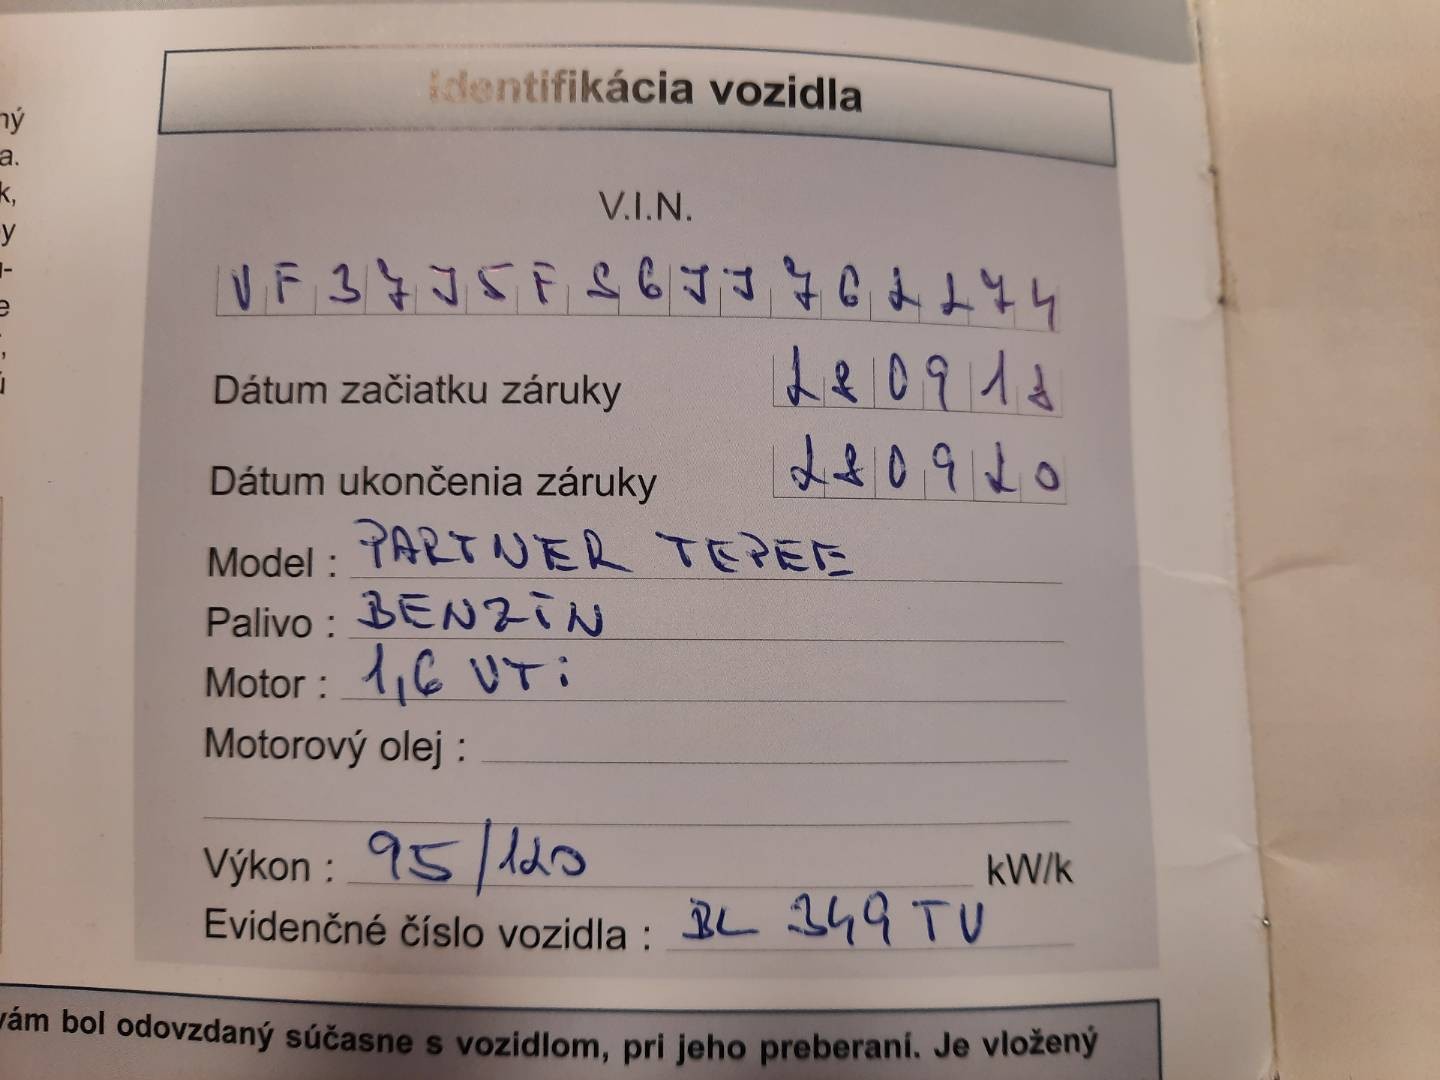 ný
a.
k,
Identifikácia vozidla
V.I.N.
VF37J5FS6JJ762274
Dátum začiatku záruky 280918
Dátum ukončenia záruky 280920
Model : PARTNER TEPEE
Palivo : BENZÍN
Motor : 1,6 VTi
Motorový olej :
Výkon : 95/120 kW/k
Evidenčné číslo vozidla : BL 349 TV
vám bol odovzdaný súčasne s vozidlom, pri jeho preberaní. Je vložený